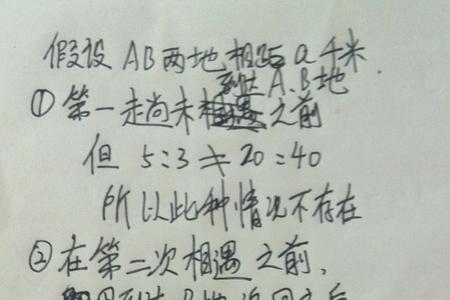 假设 AB 两地相距 a 千米.
到达 A、B 地
① 第一走尚未之前
但 5:3 ≠ 20:40
所以此种情况不存在
② 在第二次相遇之前,